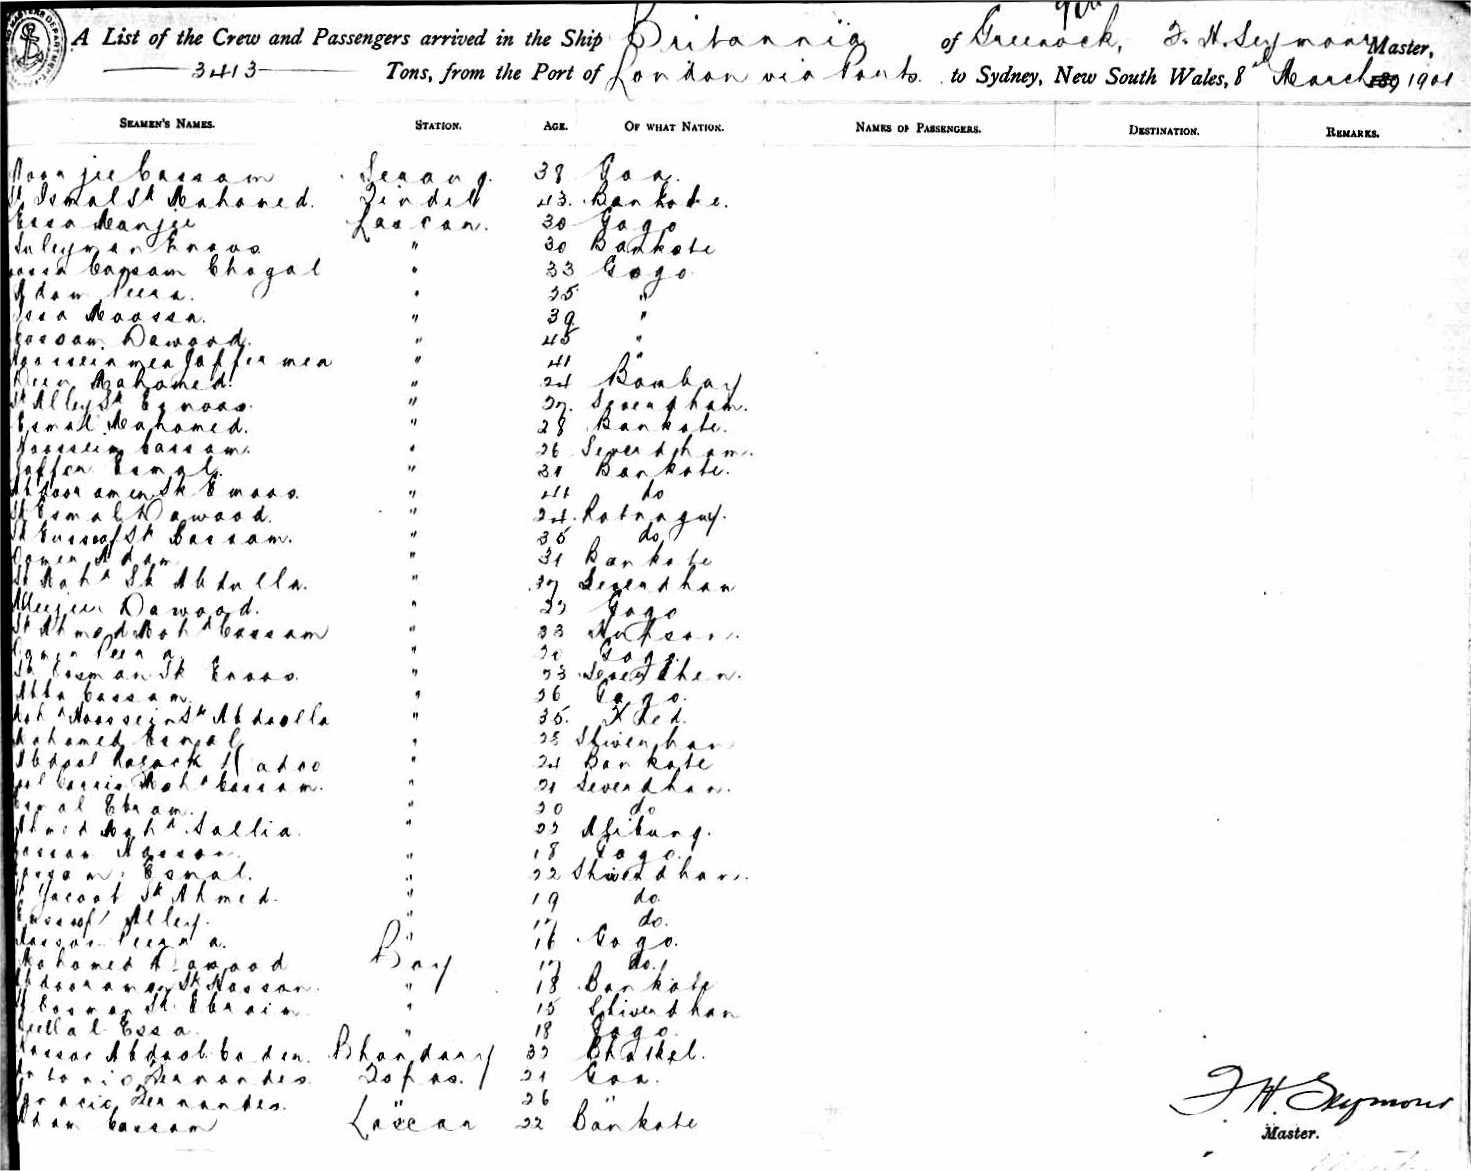 A List of the Crew and Passengers arrived in the Ship Britannia of Greenock, F. H. Seymour Master,
3413 Tons, from the Port of London via Ports to Sydney, New South Wales, 8th March 189 1901
SEAMEN'S NAMES. STATION. AGE. OF WHAT NATION. NAMES OF PASSENGERS. DESTINATION. REMARKS.
Cassam Serang. 38 Goa.
Sk Ismal Sk Mahomed. Tindel 43. Bankote.
Essa Manjie Lascar. 30 Gogo
Suleyman Enoos " 30 Bankote
Cassam Chagal " 33 Gogo
Adam Peera. " 25 "
Issa Moossa. " 39 "
Cassam Dawood. " 45 "
Hoosseinmea Jaffermea " 41 "
Deen Mahomed. " 24 Bombay
Sk Alley Sk Esnoos. " 27. Severdham.
Esmal Mahomed. " 28 Bankote.
Hoossein Cassam. " 26 Severdham.
Jaffer Esmal. " 31 Bankote.
Abdooramen Sk Enoos. " 41 do
Sk Esmal Dawood. " 24. Ratnagury.
Sk Eussoof Sk Cassam. " 35 do
Oomer Adam " 31 Bankote
Sk Mohd Sk Abdulla. " 37 Severdhan
Dawood. " 23 Gogo
Sk Ahmed Mohd Cassam " 33
Oomer Peera " 20 Gogo.
Sk Oosman Sk Enoos. " 23
Abba Cassam " 26 Gogo.
Mohd Hoossein Sk Abdoolla " 35. Khed.
Mahomed Esmal " 28 Shiverhan
Abdool Racack Kadoo " 24 Bankote
Mohd Cassam. " 21 Severdhan.
Esmal Ebram. " 20 do
Ahmed Mohd Sallia. " 22 Alibung.
Hassan Hassan " 18 Gogo.
Cassam Esmal. " 22 Shiverdhan.
Sk Yacoob Sk Ahmed. " 19 do.
Eussoof Alley. " 17 do.
Hassan Peera. " 16 Gogo.
Mahomed Dawood Boy 17 do.
Abdooraman Sk Hassan. " 18 Bankote
Sk Oosman Sk Ebraim " 15 Shiverdhan
Essa. " 18 Gogo.
Abdool Caden. Bhandary 32
Antonio Fernandes. Topas. 21 Goa.
Ignacio Fernandes. " 26 "
Adam Cassam Lascar 22 Bankote
F H Seymour
Master.